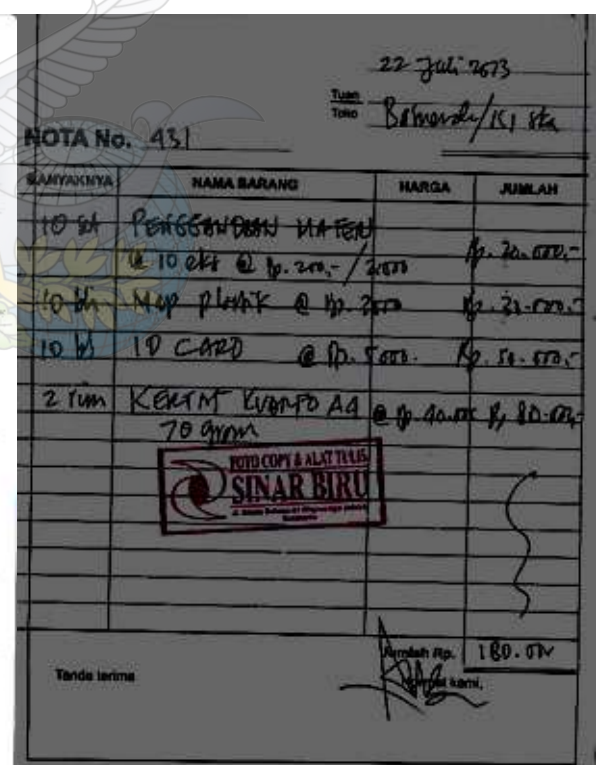 22 Juli 2023
Tuan
Toko
NOTA No. 431
BANYAKNYA NAMA BARANG HARGA JUMLAH
10 PENGGANDAAN MATERI
@ 10 eks @ Rp. 200,- / 2,000 Rp. 20.000,-
10 bh Map plastik @ Rp. 2000 Rp. 20.000,-
10 bh ID CARD @ Rp. 5000. Rp. 50.000,-
2 rim KERTAS KUARTO A4 @ Rp. 40.000 Rp 80.000,-
70 gram
FOTO COPY & ALAT TULIS
SINAR BIRU
Jumlah Rp. 180.000
Tanda terima kami,